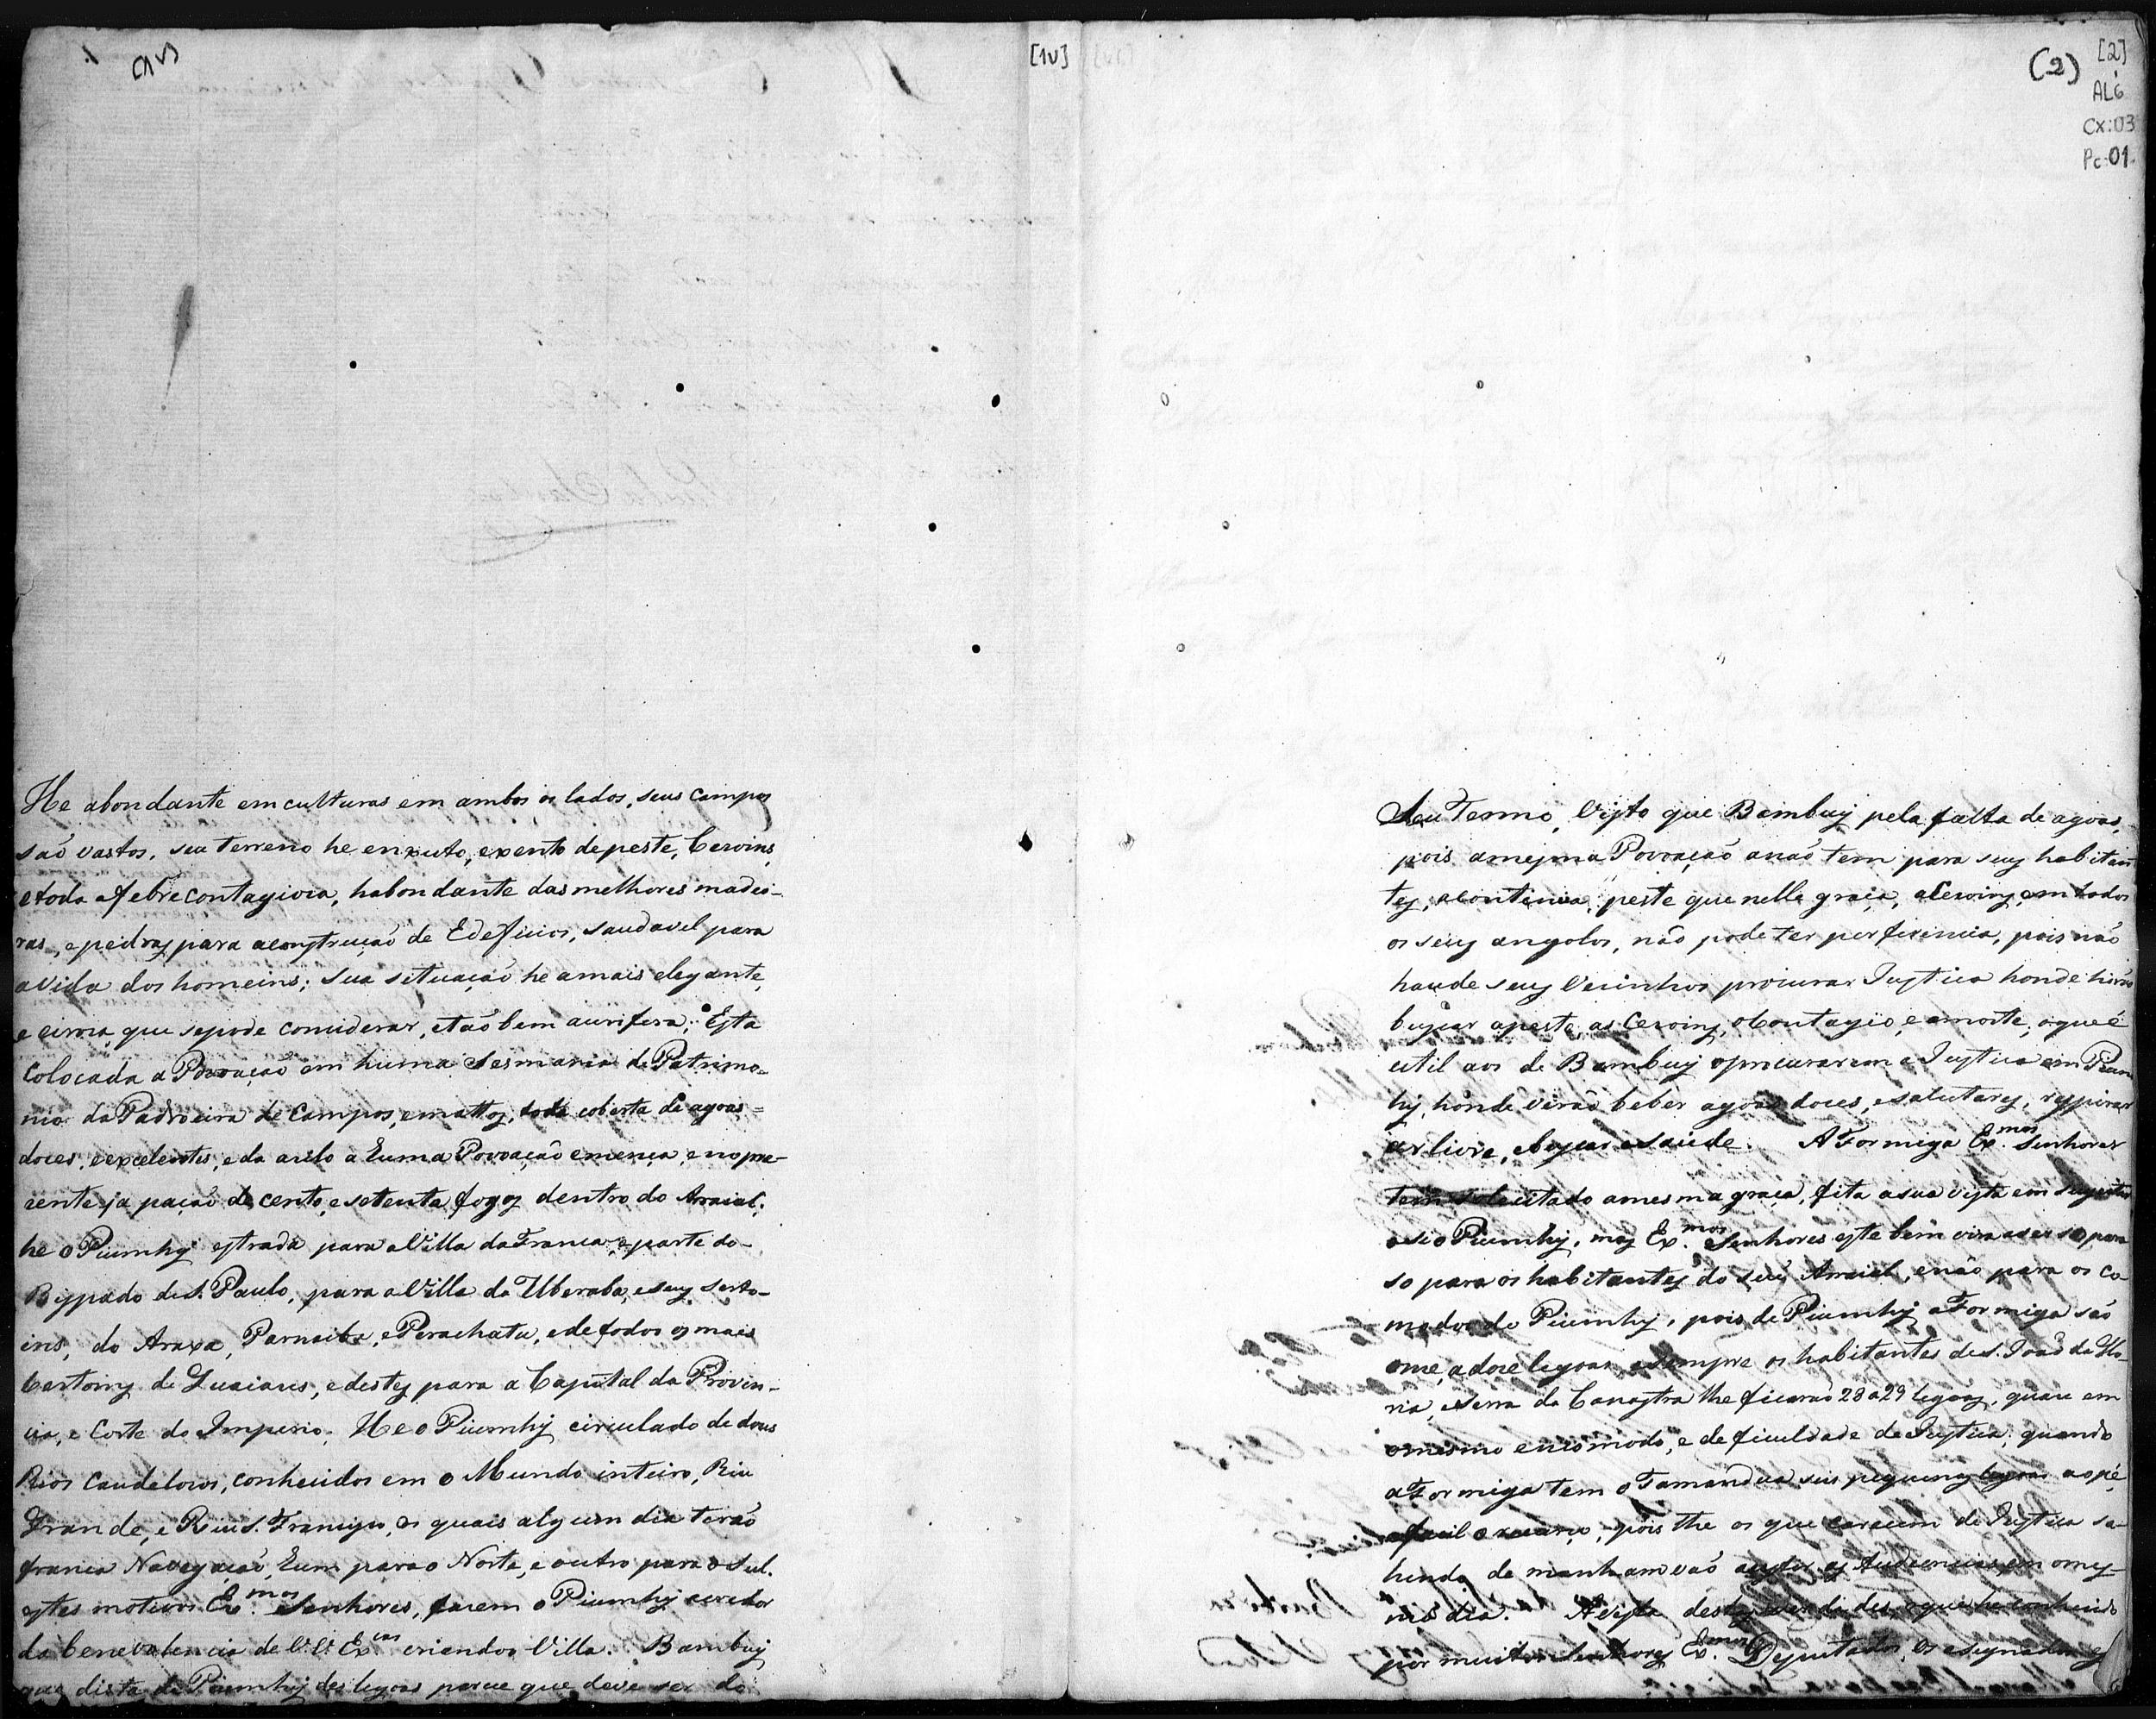 (1v)
[1v]
He abondante em culturas em ambos os lados, seus campos
são vastos, seu terreno he enxuto, exento de peste, Cevoins,
e toda a febre contagiosa, habondante das melhores madei-
ras, e pedras para a construção de Edeficios, saudavel para
a vida dos homeins; sua situação he a mais elegante,
e que se pode considerar, e tão bem aurifera; Esta
colocada a Povoação em huma Sesmaria de Patrimo-
nio da Padroeira de Campos, e mattos, toda coberta de agoas =
doces, e excelentes, e da azilo a huma Povoação emença, e no pre-
zente ja pação de cento, e setenta fogos dentro do Arraial;
he o Piumhy estrada para a Villa da Franca, e parte do
Bispado de S. Paulo, para a Villa da Uberaba, e seus serto-
ins, do Araxa, Parnaiba, e Perachatu, e de todos os mais
Certoins de Guaiazes, e destes para a Capital da Provin-
cia, e Corte do Imperio. He o Piumhy circulado de dous
Rios Caudelozos, conhecidos em o Mundo inteiro, Riu
Grande, e Riu S. Francisco, os quais algum dia terão
franca Navegação, hum para o Norte, e outro para o Sul.
estes motivos Ex.mos Senhores, fazem o Piumhy
da benevolencia de V.V. Ex.cas criando a Villa. Bambuy
que dista de Piumhy des legoas parece que deve ser do
(2)
[2]
AL6
Cx:03
Pc:01.
seu Termo, visto que Bambuy pela falta de agoas,
pois a mesma Povoação a não tem para seus habitan-
tes, a continua peste que nella graça, a Cevoins, em todos
os seus angolos, não pode ter perferencia, pois não
hande seus vezinhos procurar Justica honde hirão
buscar a peste, as Cevoins, o Contagio, e a morte, o que é
util aos de Bambuy o procurarem a Justica em Pium
hy, honde virão beber agoas doces, e salutares, respirar
ar livre, e buscar a saude. A Formiga Ex.mos Senhores
tem solicitado a mesma graça, fita a sua vista em
o Piumhy, mas Ex.mos Senhores este bem vira a ser so para
so para os habitantes do seu Arraial, e não para os co-
modos do Piumhy, pois de Piumhy a Formiga são
onze, a doze legoas, e sempre os habitantes de S. João da Glo-
ria, e Serra da Canastra lhe ficarão 28 a 29 legoas, quazi em
o mesmo encomodo, e deficuldade de Justica, quando
a Formiga tem o Tamandua seis pequenas legoas ao pé,
pois the os que carecem de Justica sa-
hindo de manham vaõ as Audiencias em o mes-
mo dia. A vista destas verdades, o que he conhecido
por muitos Senhores Ex.mos Deputados, os